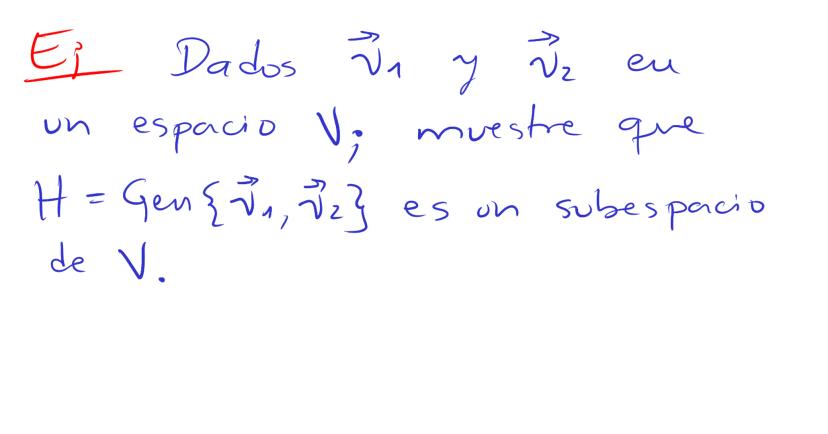 Ej Dados v⃗1 y v⃗2 en
un espacio V; muestre que
H = Gen{v⃗1, v⃗2} es un subespacio
de V.